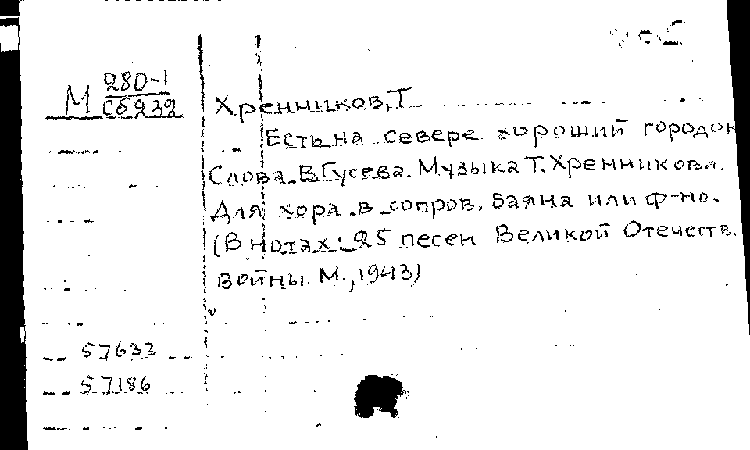 М 280-1
Сб 232
Хренников, Т
Есть на севере хороший городок
Слова В. Гусева. Музыка Т. Хренникова.
Для хора в сопров. баяна или ф-но.
(В нотах: 25 песен Великой Отечеств.
войны. М., 1943)
57633
57186